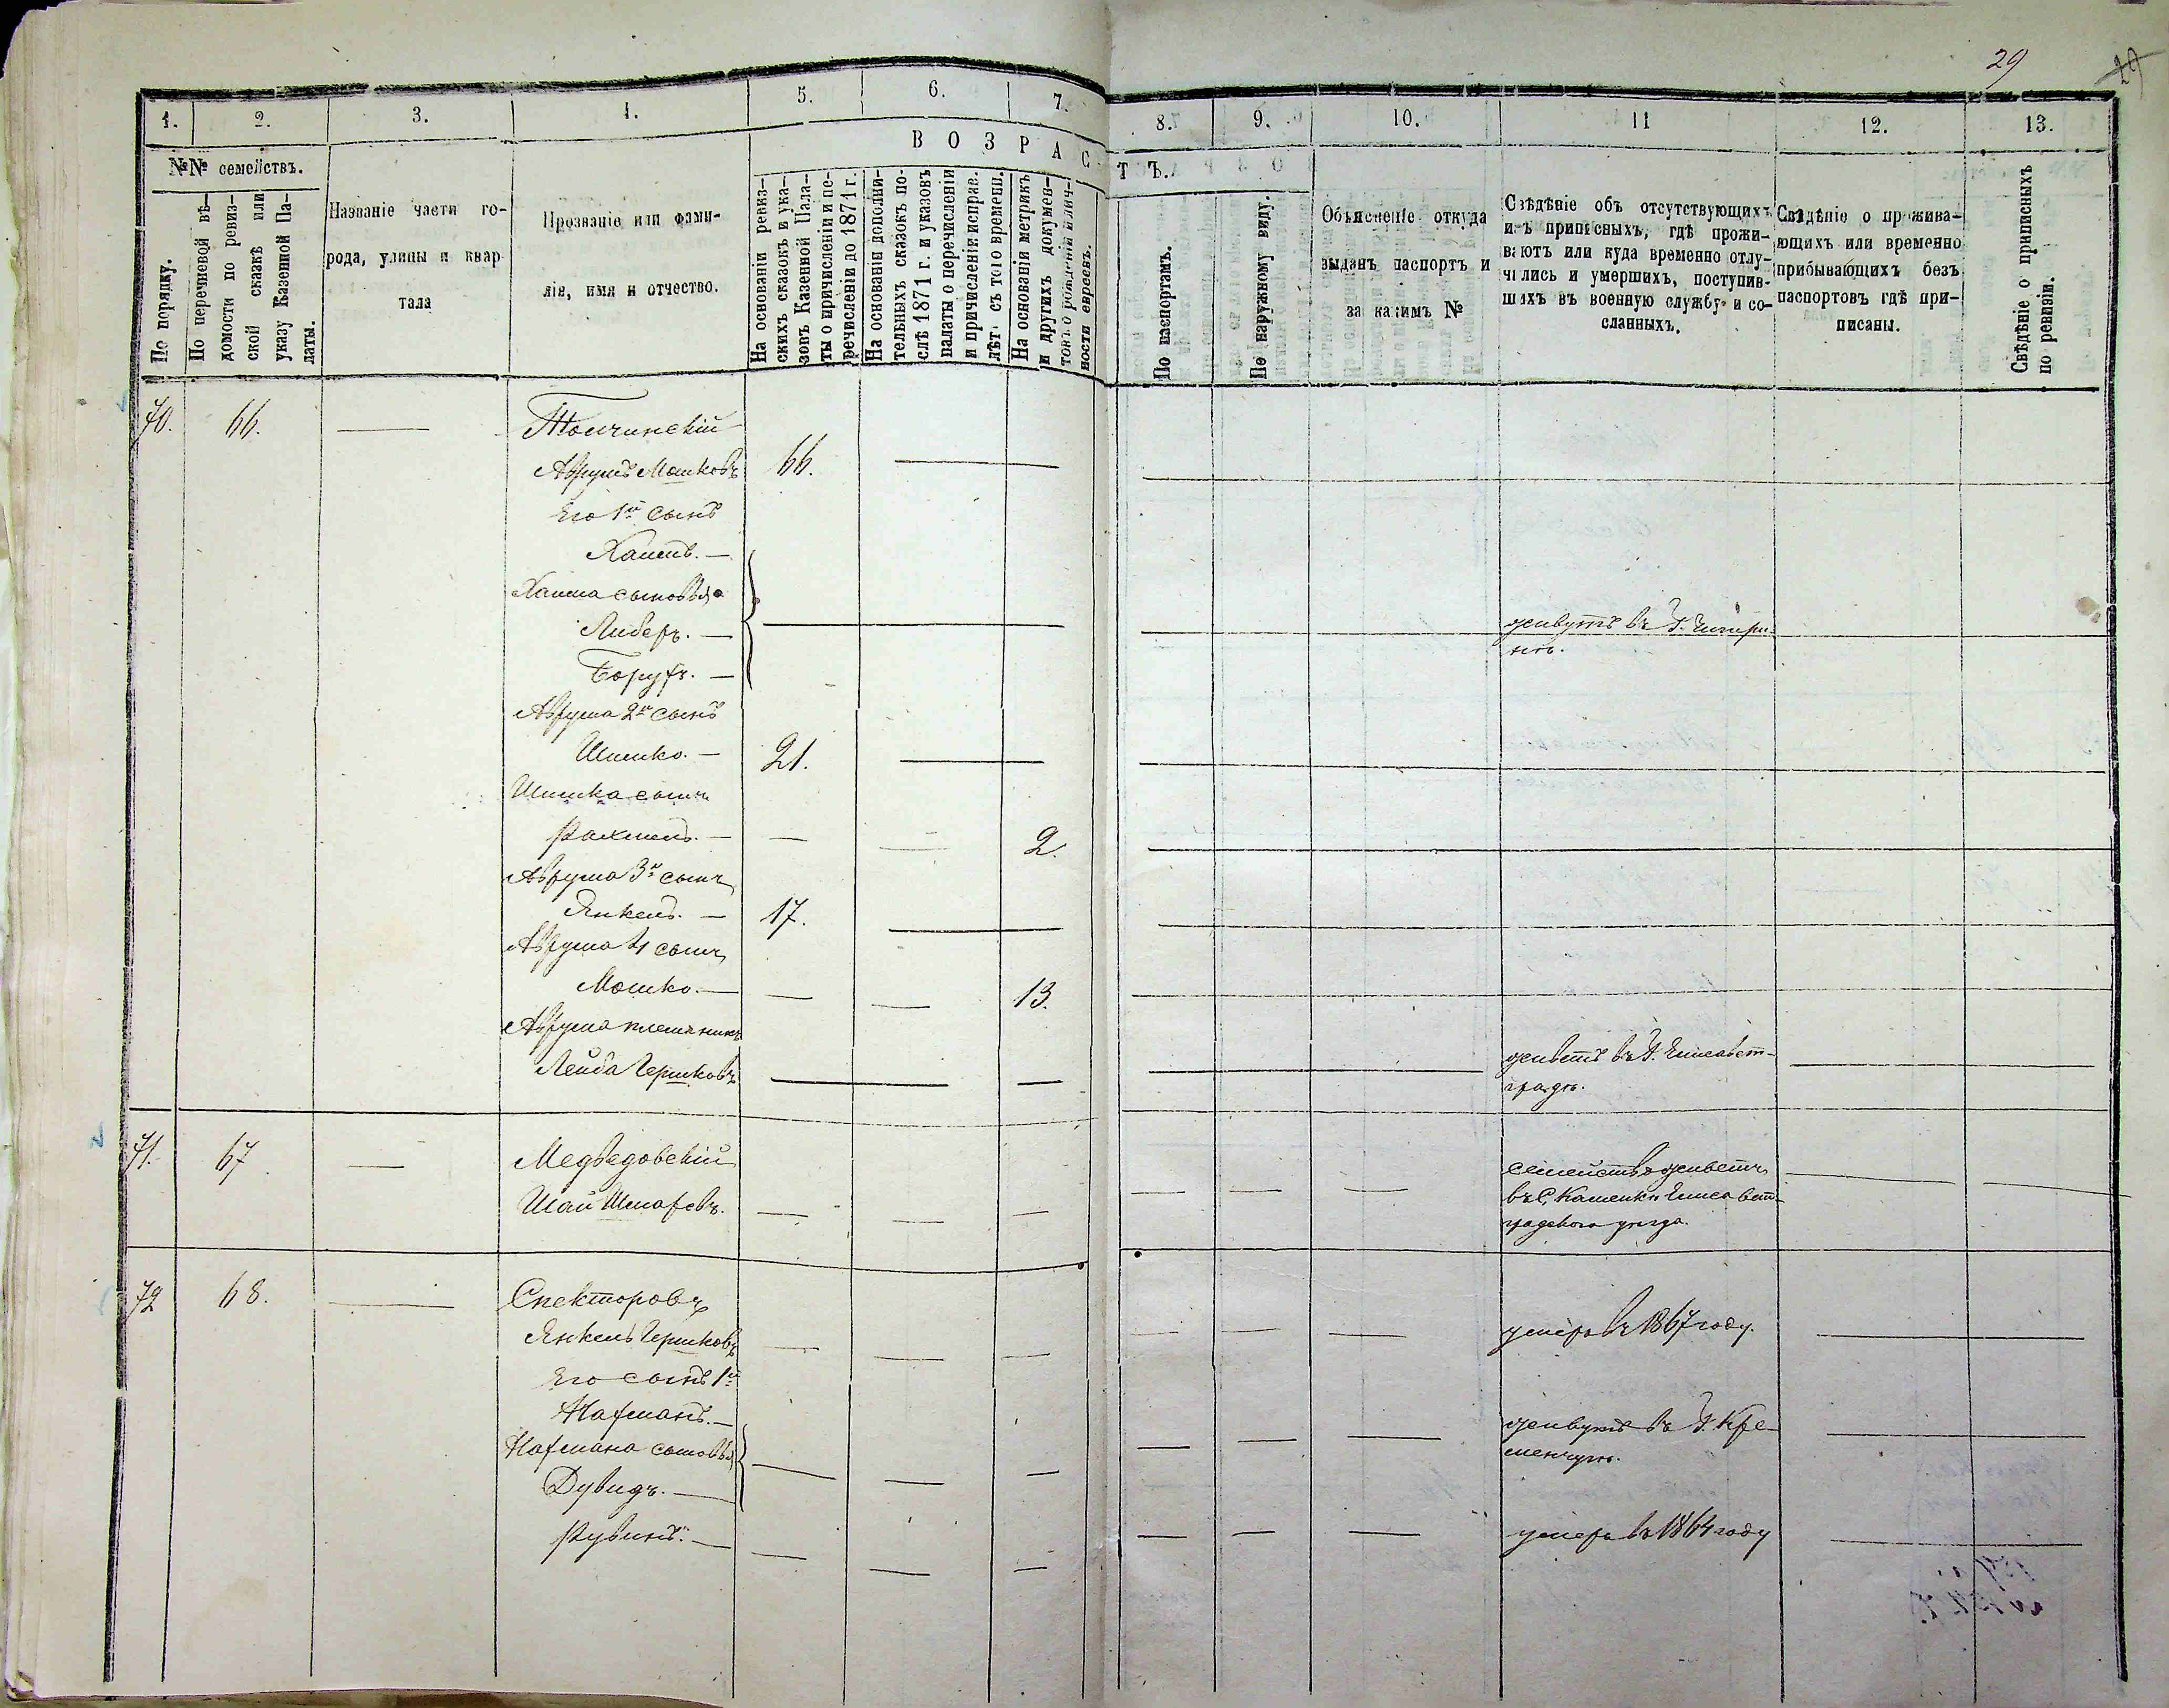 29
29
1.
2.
3.
4.
5.
6.
7.
8.
9.
10.
11
12.
13.
№№ семействъ.
По порядку.
По перечневой вѣ-
домости по ревиз-
ской сказкѣ или
указу Казенной Па-
латы.
Названіе части го-
рода, улицы и квар-
тала
Прозваніе или фами-
лія, имя и отчество.
ВОЗРАС
ТЪ.
На основаніи ревиз-
скихъ сказокъ и ука-
зовъ Казенной Пала-
ты о причисленіи и пе-
речисленіи до 1871 г.
На основаніи дополни-
тельныхъ сказокъ по-
слѣ 1871 г. и указовъ
палаты о перечисленіи
и причисленіи исправ.
лѣт. съ того времени.
На основаніи метрикъ
и другихъ докумен-
товъ о рожденіи и лич-
ности евреевъ.
По паспортамъ.
По наружному виду.
Объясненіе откуда
выданъ паспортъ и
за какимъ №
Свѣдѣніе объ отсутствующихъ
изъ приписныхъ, гдѣ прожи-
ваютъ или куда временно отлу-
чились и умершихъ, поступив-
шихъ въ военную службу и со-
сланныхъ.
Свѣдѣніе о прожива-
ющихъ или временно
прибывающихъ безъ
паспортовъ гдѣ при-
писаны.
Свѣдѣніе о приписныхъ
по ревизіи.
70. 66. —
Аврумъ Мошковъ 66. —
Его 1й сынъ
Хаимъ. —
Хаима сыновья
Либеръ. — живутъ въ г. Чигири-
Борухъ. — нѣ.
Аврума 2й сынъ
Шимко. — 21. —
Шимка сынъ
Рахмиль. — — — 2.
Аврума 3й сынъ
Янкель. — 17. —
Аврума 4 сынъ
Мошко. — — — 13.
Аврума племянникъ живетъ въ г. Елисавет-
Лейба Гершковъ — — градѣ.
71. 67. — Медведовскій семейство живетъ
Шая — — — въ С. Каменкѣ Елисавет-
градского уѣзда.
72 68. — Спекторовъ
Янкель Гершковъ — — — умеръ въ 1867 году.
Его сынъ 1й
Нахманъ. — живутъ въ г. Кре-
Нахмана сыновья — — — менчугѣ.
Дувидъ. —
Рувинъ. — — — — умеръ въ 1864 году